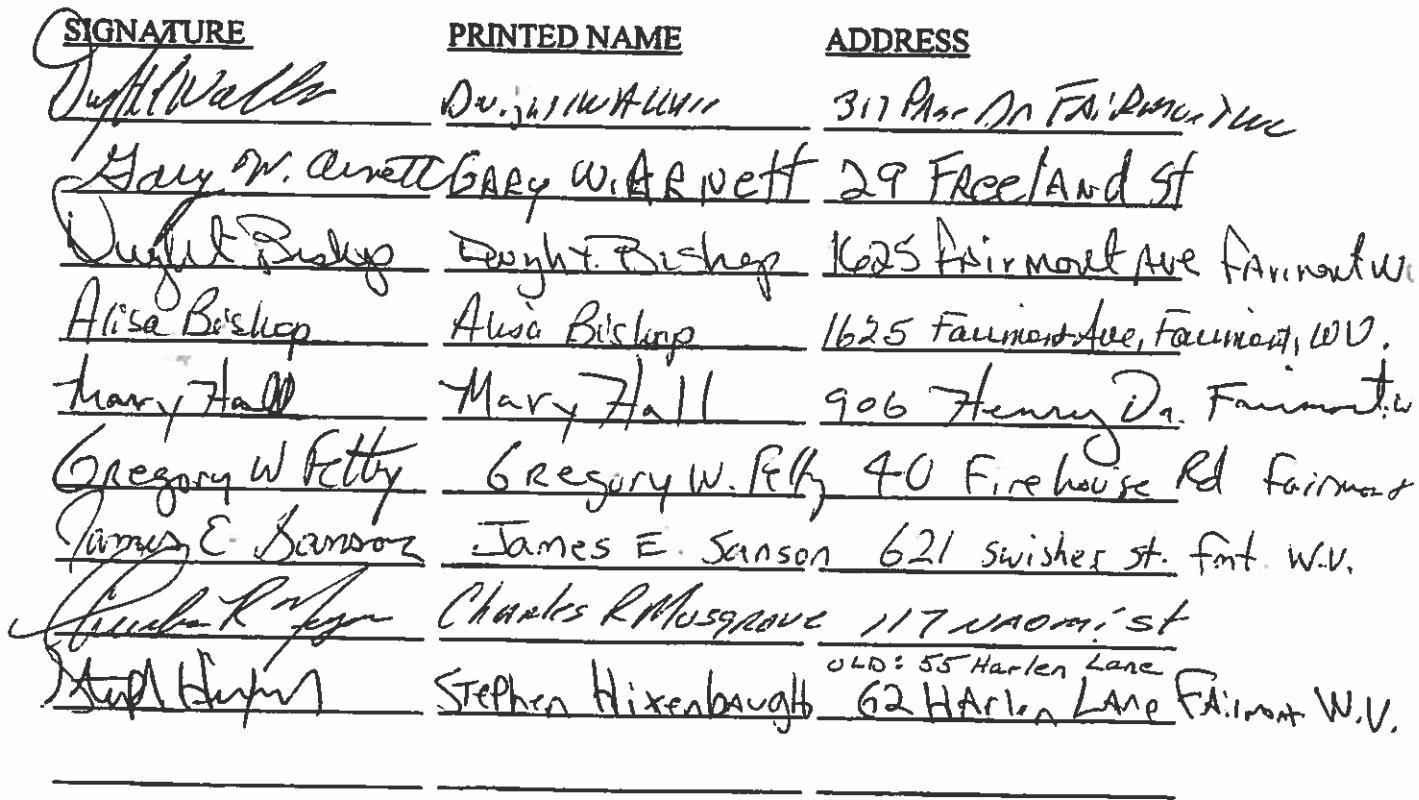 SIGNATURE PRINTED NAME ADDRESS
317
Gary W. Arnett GARY W. ARNett 29 FReelAnd St
Dwight Bishop Dwight Bishop 1625 FAirmont Ave FAirmont W
Alisa Bishop Alisa Bishop 1625 Fairmont Ave, Fairmont, WV.
Mary Hall Mary Hall 906 Henry Dr. Fairmont. W
Gregory W Fetty Gregory W. Fetty 40 Firehouse Rd Fairmont
James E. Sanson James E. Sanson 621 swisher st. fmt. W.V.
Charles R Musgrove 117 NAOmi st
OLD: 55 Harlen Lane
Stephen Hixenbaugh 62 HArlen LAne FAirmont W.V.